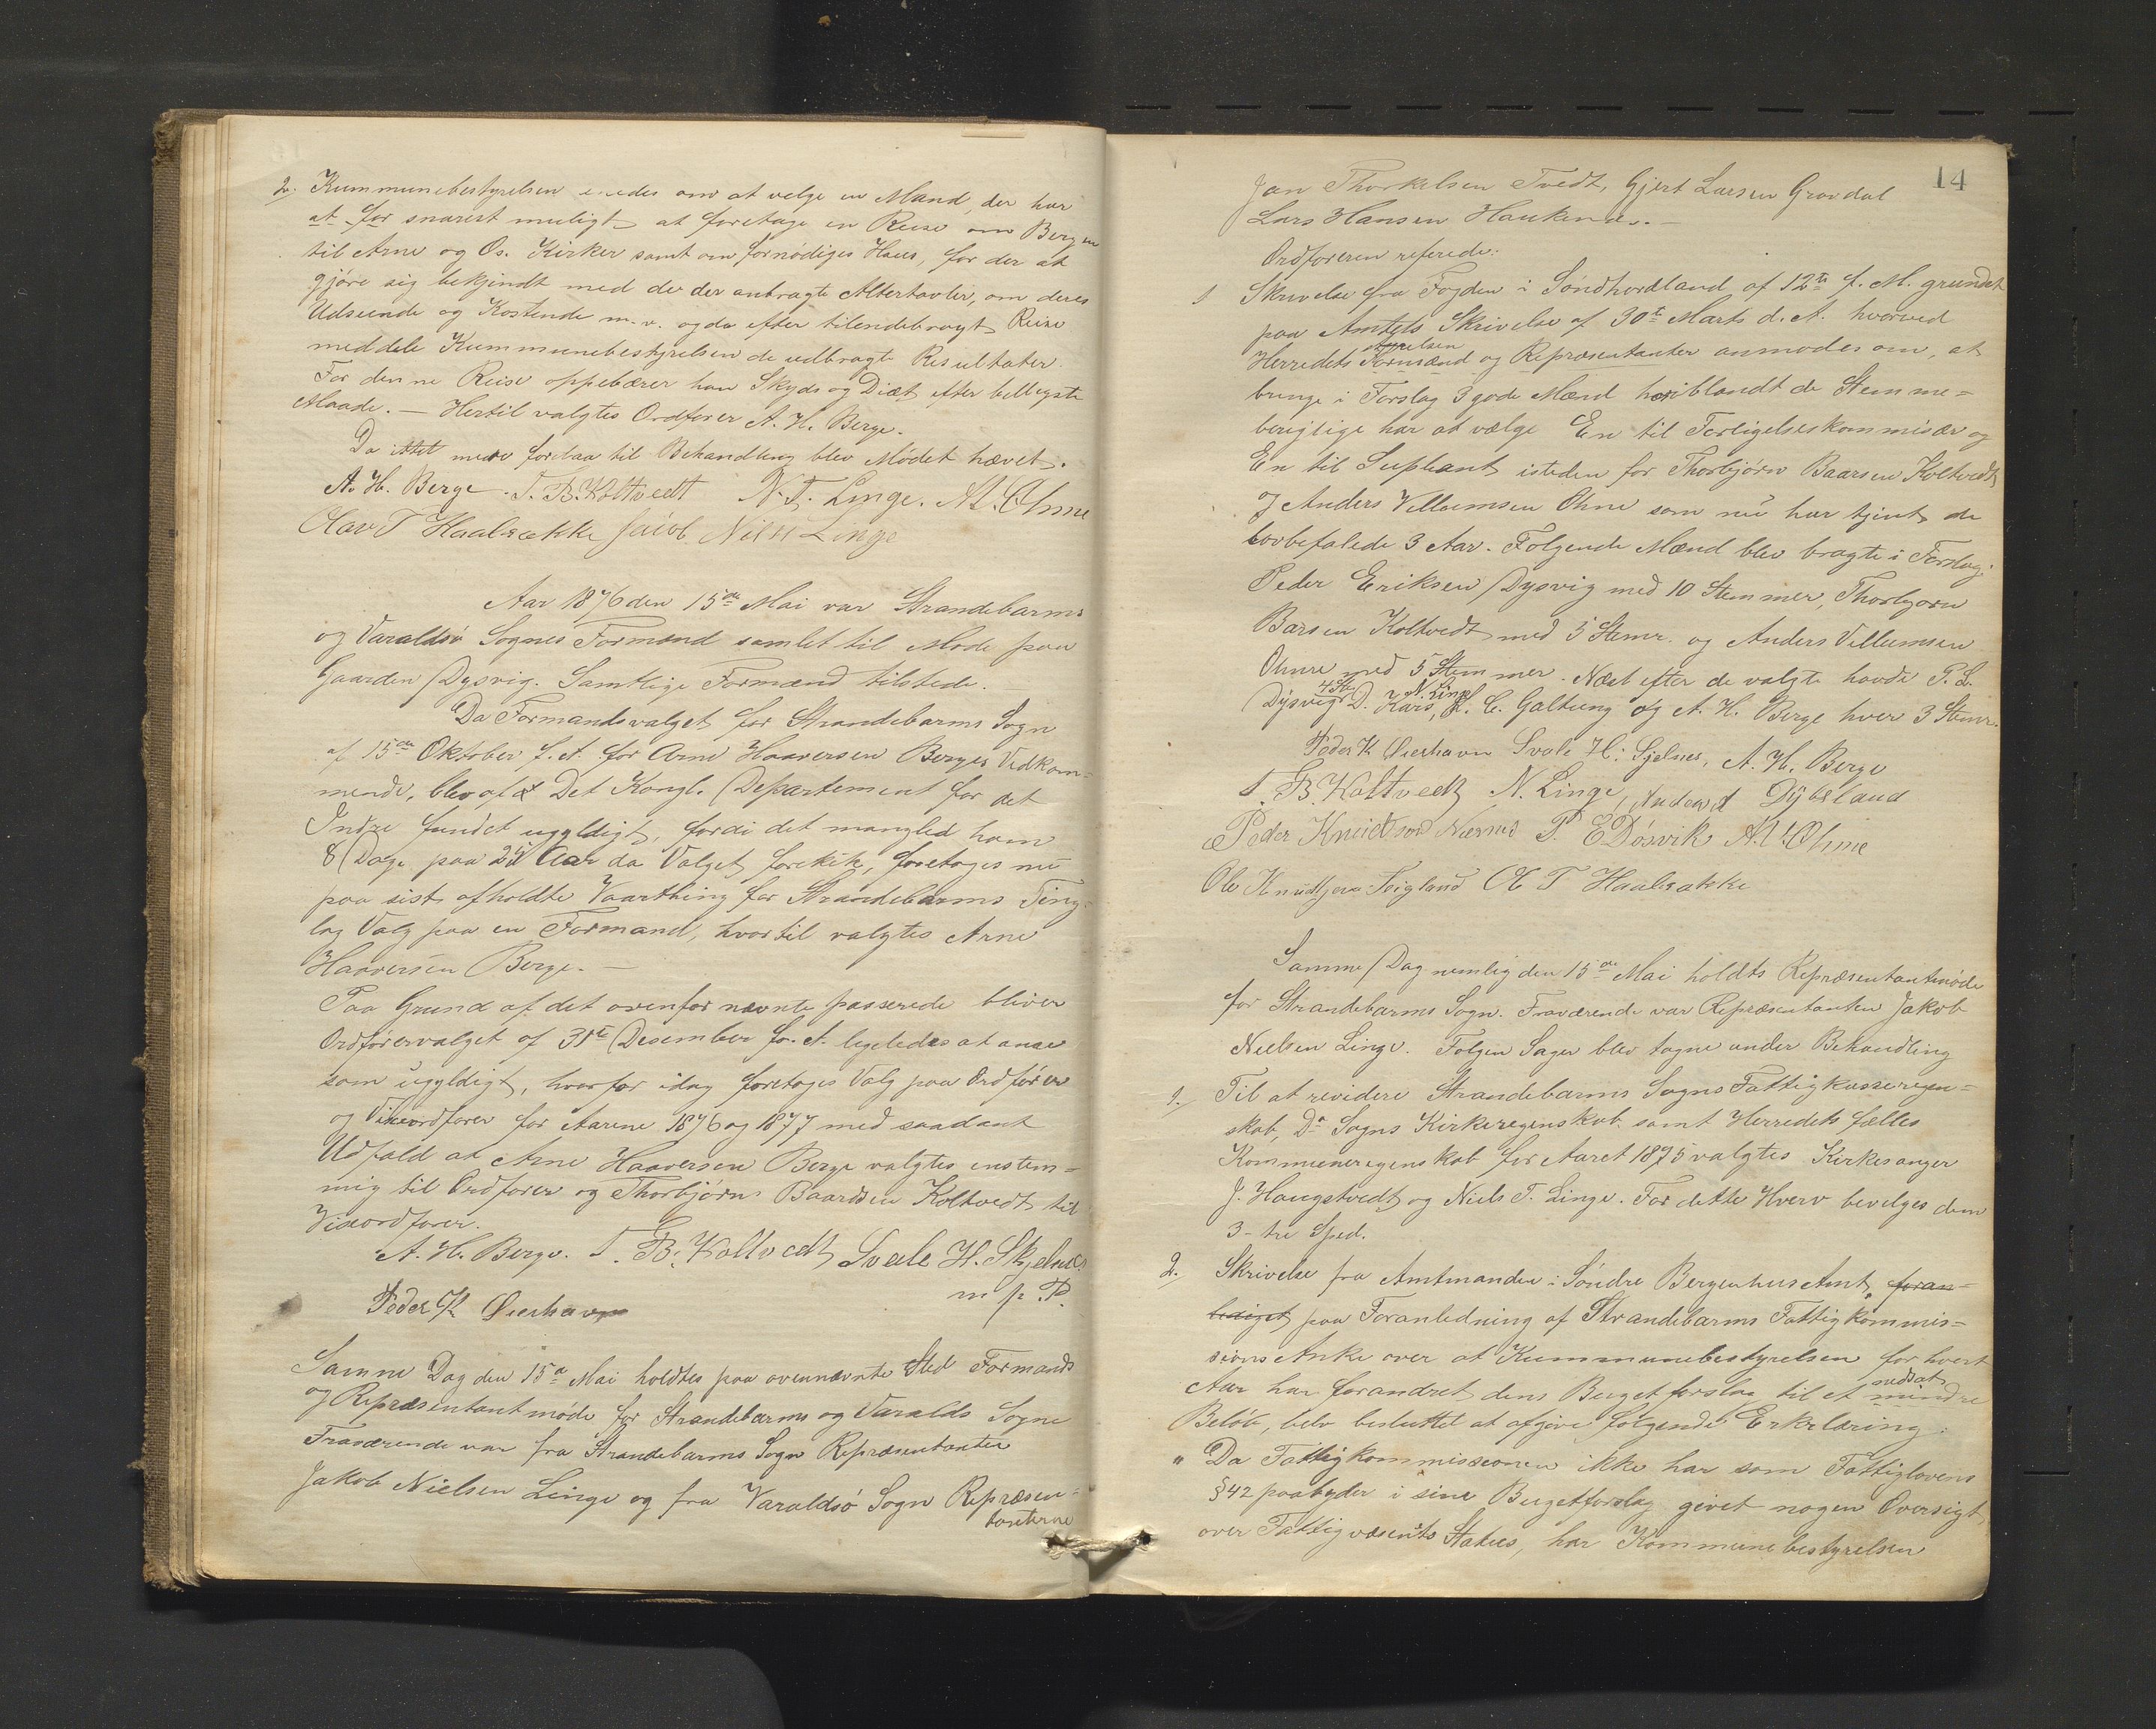 2. Kummunebestyrelsen enedes om at velge en Mand, der har
at for snarest muligt at foretage en Reise om Bergen
til Arne og Os. Kirker samt om fornødiges Haus, for der at
gjøre sig bekjendt med de der anbragte Altertavler, om deres
Udseende og Kostende m.v. og da efter tilendebragt Reise
meddele Kummunebestyrelsen de udbragte Resultater.
For denne Reise oppebærer han Skyds og Diæt efter billigste
Maade. — Hertil valgtes Ordfører A. H. Berge.
Da intet mere forelaa til Behandling blev Mødet hævet.
A. H. Berge. T. B. Koltvedt N. T. Linge. A. V. Ohme
Olav T Haalsække Jacob Niels Linge
Aar 1876 den 15de Mai var Strandebarms
og Varaldsø Sognes Formænd samlet til Møde paa
Gaarden Dysvig. Samtlige Formænd tilstede.
Da Formandsvalget for Strandebarms Sogn
af 15de Oktober f. A. for Arne Haaversen Berges Vedkom-
mende, blev af Det Kongl. Departement for det
Indre fundet ugyldigt, fordi det mangled ham
8 Dage paa 25 Aar da Valget forekik, foretoges nu
paa sist afholdte Vaarthing for Strandebarms Ting-
lag Valg paa en Formand, hvortil valgtes Arne
Haaversen Berge. —
Paa Grund af det ovenfor nævnte passerede bliver
Ordførervalget af 31te Desember f. A. ligeledes at anse
som ugyldigt, hvorfor idag foretoges Valg paa Ordfører
og Viseordfører for Aarene 1876 og 1877 med saadant
Udfald at Arne Haaversen Berge valgtes enstem-
mig til Ordfører og Thorbjørn Baardsen Koltvedt til
Viseordfører.
A. H. Berge. T. B. Koltvedt Svale H. Skjelnes
m p. P.
Peder K Øierhavn
Samme Dag den 15de Mai holdtes paa ovennævnte Sted Formands
og Repræsentantmøde for Strandebarms og Varalds Sogne
Fraværende var fra Strandebarms Sogn Repræsentanten
Jakob Nielsen Linge og fra Varaldsø Sogn Repræsen-
tanterne
14
Jan Thorkelsen Tvedt, Gjert Larsen Gravdal
Lars Hansen Haukenæs. —
Ordføreren referede:
1 Skrivelse fra Fogden i Søndhordland af 12te f. M. grundet
paa Amtets Skrivelse af 30te Marts d. A. hvorved
styrelsen
Herredets Formænd og Repræsentanter anmodes om, at
bringe i Forslag 3 gode Mænd hvoriblandt de Stemme-
berigtige har at vælge En til Forligelseskommisær og
En til Supleant isteden for Thorbjørn Baarsen Koltvedt
og Anders Villumsen Ohne som nu har tjent de
lovbefalede 3 Aar. Følgende Mænd blev bragte i Forslag:
Peder Eriksen Dysvig med 10 Stemmer, Thorbjørn
Barsen Koltvedt med 5 Stemr. og Anders Villumsen
Ohme med 5 Stemmer. Næst efter de valgte havde P. L.
4 St. N. Linge
Dysvig D. Kars, H. C. Galtung og A. H. Berge hver 3 Stemr.
Peder K Øierhavn Svale H. Sjelnes, A. H. Berge
T. B. Koltvedt N. Linge, Anders A Dybsland
Peder Knudtson Nernes P. E Dösvik A. V. Ohme
Ole Knudtsen Teigland O T Haalsække
Samme Dag nemlig den 15de Mai holdts Repræsentantmøde
for Strandebarms Sogn. Fraværende var Repræsentanten Jakob
Nielsen Linge. Følgen Sager blev tagne under Behandling
1. Til at revidere Strandebarms Sogns Fattigkasseregen-
skab, Do Sogns Kirkeregenskab samt Herredets fælles
Kommuneregenskab for Aaret 1875 valgtes Kirkesanger
J. Haugstvedt og Niels T. Linge. For dette Hverv bevilges dem
3- tre Spd.
2. Skrivelse fra Amtmanden i Søndre Bergenhus Amt, foran-
lediget paa Foranledning af Strandebarms Fattigkommis-
sions Anke over at Kummunebestyrelsen for hvert
nedsat
Aar har forandret dens Bugetforslag til et mindre
Beløb, belv besluttet at afgive følgende Erklæring:
" Da Fattigkommissionen ikke har som Fattiglovens
§ 42 paabyder i sine Bugetforslag givet nogen Oversigt
over Fattigvæsents Status, har Kommunebestyrelsen